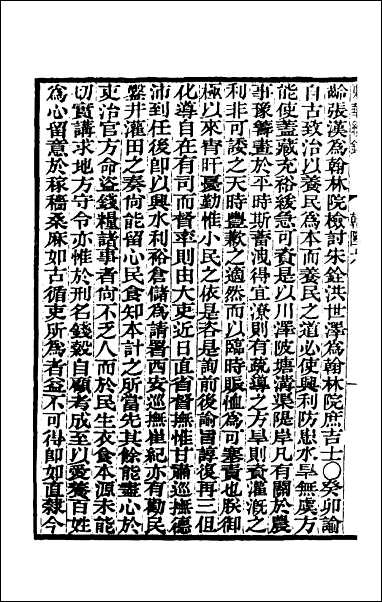 齡張漢為翰林院檢討朱銓洪世澤為翰林院庶吉士○癸卯諭
自古致治以養民為本而養民之道必使興利防患水旱無虞方
能使蓋藏充裕緩急可資是以川澤陂塘溝渠隄岸凡有關於農
事豫籌畫於平時斯蓄洩得宜潦則有疏導之方旱則資灌溉之
利非可諉之天時豐歉之適然而以臨時賑恤為可塞責也朕御
極以來宵旰憂勤惟小民之依是咨是詢前後諭旨諄復再三但
化導自在有司而督率則由大吏近日直省督撫惟甘肅巡撫德
沛到任後即以興水利裕倉儲為請署西安巡撫崔紀亦有勸民
鑿井灌田之奏尚能留心民食知本計之所當先其餘能盡心於
吏治官方命盜錢糧諸事者尚不乏人而於民生衣食本源未能
切實講求地方守令亦惟於刑名錢穀自顧考成至以愛養百姓
為心留意於稼穡桑麻如古循吏所為者益不可得即如直隸今